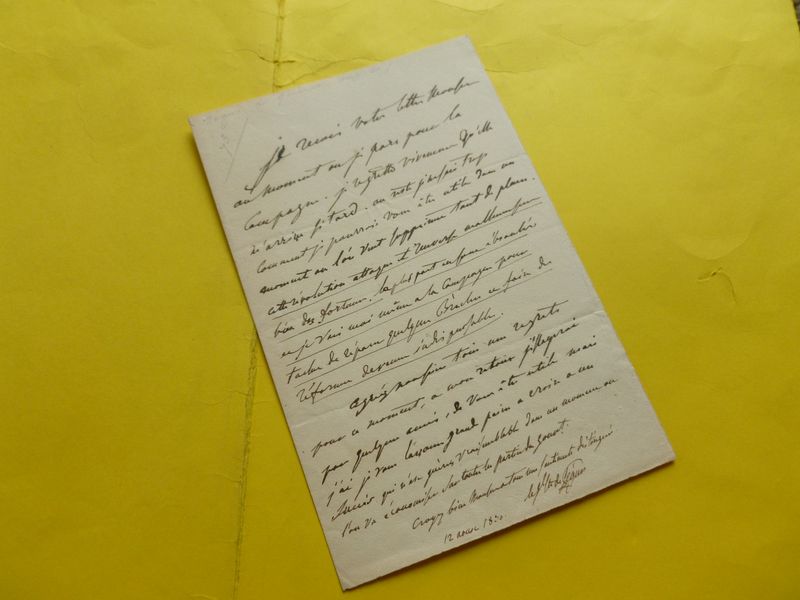 je reçois votre lettre Monsieur
au moment où je pars pour la
Campagne. je regrette vivement qu'elle
m'arrive si tard. au reste je ne sais trop
comment je pourrois vous être utile dans un
moment où l'on veut supprimer tant de places.
cette révolution attaque et renverse malheureusement
bien des fortunes. la plus part en sont ébranlées
et je vais moi même a la Campagne pour
tacher de réparer quelques Brèches et faire des
réformes devenues indispensables.
agréez Monsieur tous mes regrets
pour ce moment, a mon retour
par quelques amis, de vous être utile mais
j'ai je vous l'avoue grand peine a croire a un
succès qui n'est guères vraisemblable dans un moment où
l'on va économiser sur toutes les parties du gouvt.
Croyez bien Monsieur a tous mes sentiments distingués
le Cte de Ségur
12 aoust